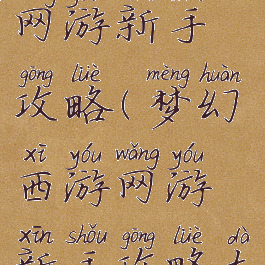 网游新手
gōng lüè mèng huàn
攻略(梦幻
xī yóu wǎng yóu
西游网游
xīn shǒu gōng lüè dà